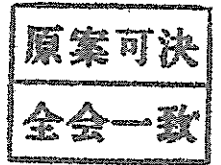 原案可決
全会一致